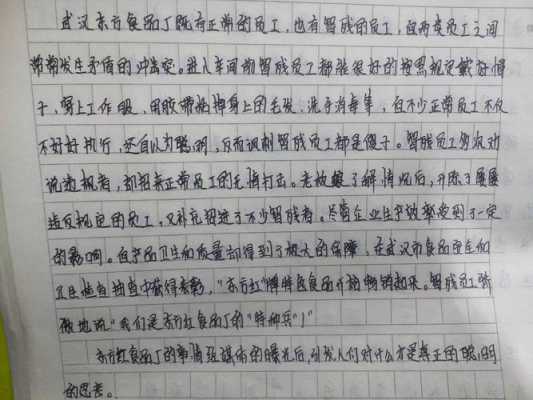 武汉东方食品厂既有正常的员工，也有智残的员工，但两类员工之间
常常发生矛盾的冲突。进入车间前智残员工都能很好的按照规定戴好帽
子，穿上工作服，用胶带粘掉身上的毛发，洗手消毒等，但不少正常员工不仅
不好好执行，还自以为聪明，反而讽刺智残员工都是傻子。智残员工劝
说违规者，却招来正常员工的无情打击。老板了解情况后，开除了屡屡
违反规定的员工，又补充招进了不少智残者。尽管企业生产效率受到了一定
的影响。但产品卫生和质量却得到了极大的保障，在武汉市食品安全和
卫生抽查中获得表彰，"东方红"牌特色食品开始畅销起来。智残员工骄
傲地说"我们是东方红食品厂的"特种兵"！
东方红食品厂的事情经媒体的曝光后，引发人们对什么才是真正的聪明
的思考。